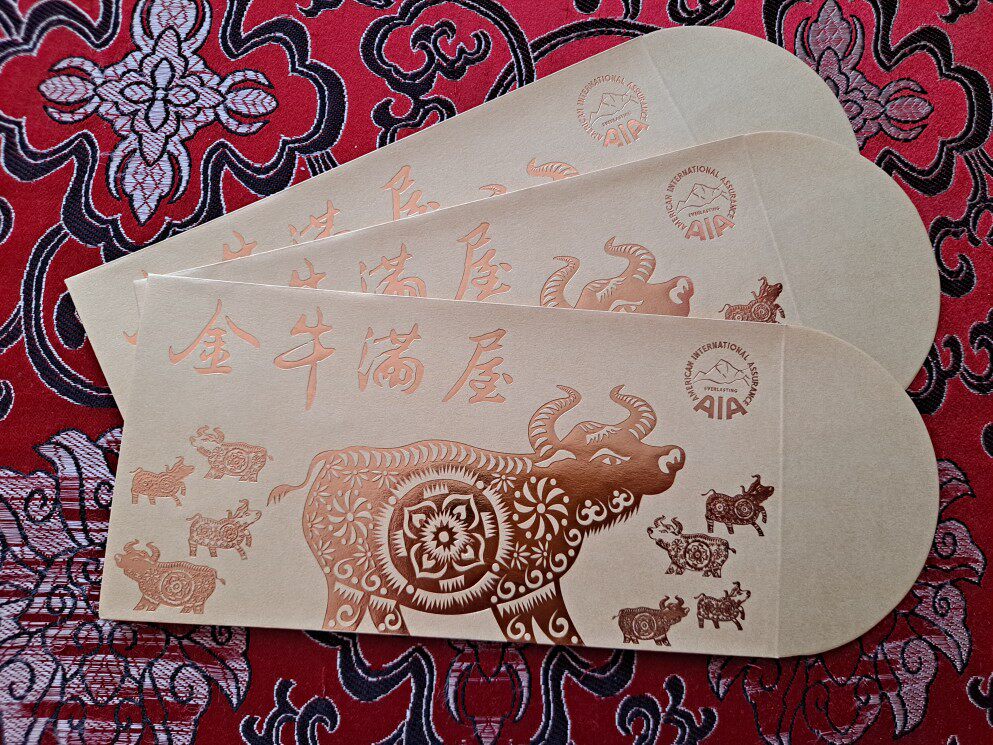 AMERICAN INTERNATIONAL ASSURANCE
EVERLASTING
AIA
牛滿屋
AMERICAN INTERNATIONAL ASSURANCE
EVERLASTING
AIA
牛滿屋
金牛滿屋
AMERICAN INTERNATIONAL ASSURANCE
EVERLASTING
AIA